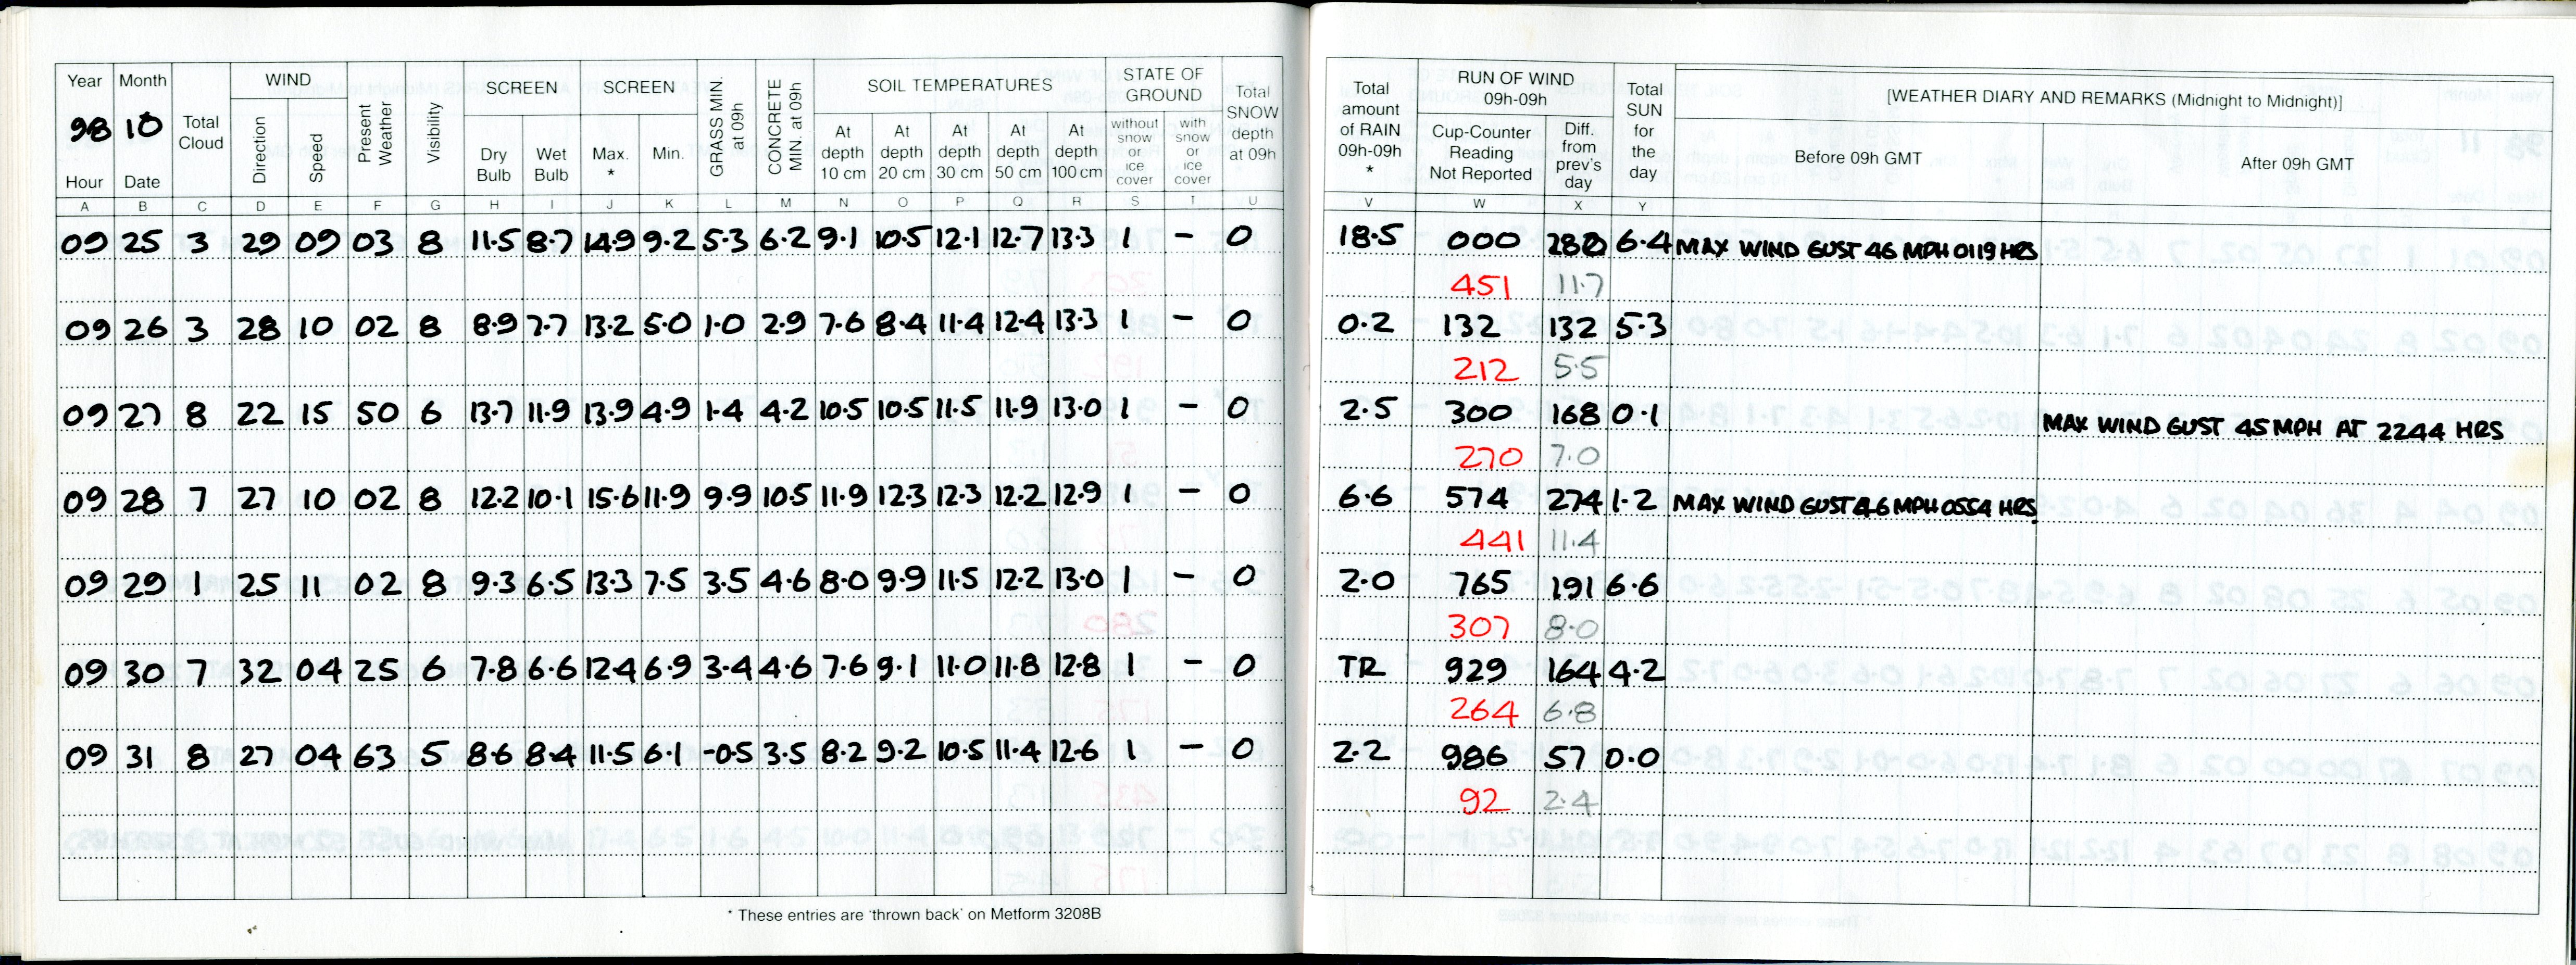 Year Month WIND SCREEN SCREEN SOIL TEMPERATURES STATE OF GROUND
98 10 Total Cloud Direction Speed Present Weather Visibility Dry Bulb Wet Bulb Max. * Min. GRASS MIN. at 09h CONCRETE MIN. at 09h At depth 10 cm At depth 20 cm At depth 30 cm At depth 50 cm At depth 100 cm without snow or ice cover with snow or ice cover Total SNOW depth at 09h
Hour Date
A B C D E F G H I J K L M N O P Q R S T U
09 25 3 29 09 03 8 11.5 8.7 14.9 9.2 5.3 6.2 9.1 10.5 12.1 12.7 13.3 1 - 0
09 26 3 28 10 02 8 8.9 7.7 13.2 5.0 1.0 2.9 7.6 8.4 11.4 12.4 13.3 1 - 0
09 27 8 22 15 50 6 13.7 11.9 13.9 4.9 1.4 4.2 10.5 10.5 11.5 11.9 13.0 1 - 0
09 28 7 27 10 02 8 12.2 10.1 15.6 11.9 9.9 10.5 11.9 12.3 12.3 12.2 12.9 1 - 0
09 29 1 25 11 02 8 9.3 6.5 13.3 7.5 3.5 4.6 8.0 9.9 11.5 12.2 13.0 1 - 0
09 30 7 32 04 25 6 7.8 6.6 12.4 6.9 3.4 4.6 7.6 9.1 11.0 11.8 12.8 1 - 0
09 31 8 27 04 63 5 8.6 8.4 11.5 6.1 -0.5 3.5 8.2 9.2 10.5 11.4 12.6 1 - 0
* These entries are 'thrown back' on Metform 3208B
Total amount of RAIN 09h-09h * RUN OF WIND 09h-09h Total SUN for the day [WEATHER DIARY AND REMARKS (Midnight to Midnight)]
Cup-Counter Reading Not Reported Diff. from prev's day Before 09h GMT After 09h GMT
V W X Y
18.5 000 280 6.4 MAX WIND GUST 46 MPH 0119 HRS
451 11.7
0.2 132 132 5.3
212 5.5
2.5 300 168 0.1 MAX WIND GUST 45 MPH AT 2244 HRS
270 7.0
6.6 574 274 1.2 MAX WIND GUST 46 MPH 0554 HRS
441 11.4
2.0 765 191 6.6
307 8.0
TR 929 164 4.2
264 6.8
2.2 986 57 0.0
92 2.4